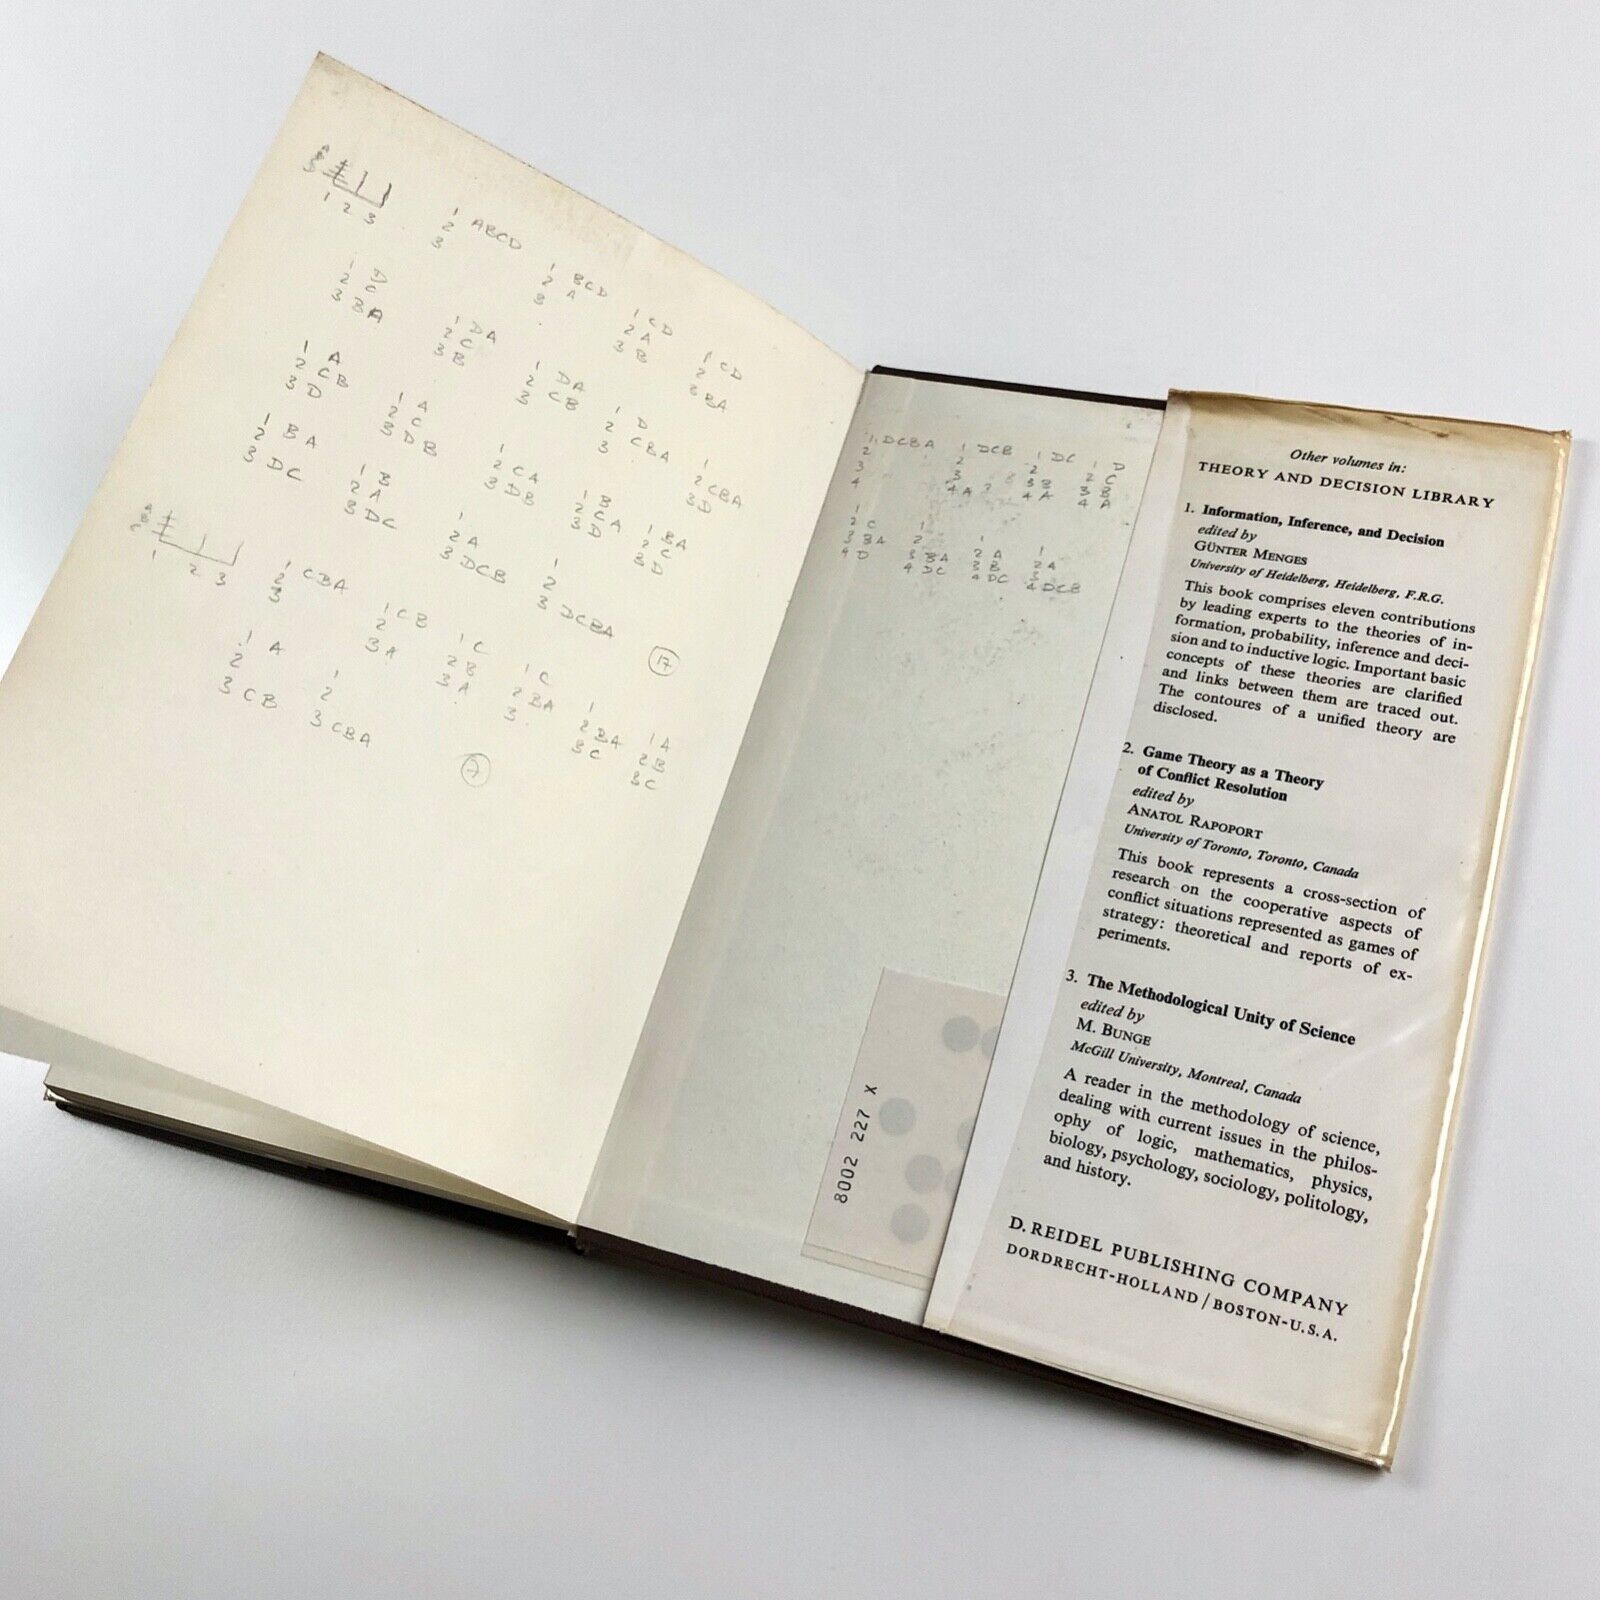 1 2 3
1
2 ABCD
3
1
2 BCD
3 A
1 CD
2 A
3 B
1 D
2 C
3 BA
1 DA
2 C
3 B
1 A
2 CB
3 D
1 A
2 C
3 DB
1
2 CA
3 DB
1
2 CBA
3 D
1
2 BA
3 DC
1 B
2 A
3 DC
1
2 A
3 DCB
1
2
3 DCBA
17
1 2 3
1
2 CBA
3
1
2 CB
3 A
1 C
2 B
3 A
1 C
2 BA
3
1
2 BA
3 C
1 A
2 B
3 C
1 A
2
3 CB
1
2
3 CBA
7
1 DCBA
2
3
4
1 DCB
2
3
4 A
1 DC
2
3 B
4 A
1 D
2 C
3 B
4 A
1
2 C
3 BA
4 D
1
2
3 BA
4 DC
1
2 A
3 B
4 DC
1
2 A
3
4 DCB
8002 227 X
Other volumes in:
THEORY AND DECISION LIBRARY
1. Information, Inference, and Decision
edited by
GÜNTER MENGES
University of Heidelberg, Heidelberg, F.R.G.
This book comprises eleven contributions
by leading experts to the theories of in-
formation, probability, inference and deci-
sion and to inductive logic. Important basic
concepts of these theories are clarified
and links between them are traced out.
The contoures of a unified theory are
disclosed.
2. Game Theory as a Theory
of Conflict Resolution
edited by
ANATOL RAPOPORT
University of Toronto, Toronto, Canada
This book represents a cross-section of
research on the cooperative aspects of
conflict situations represented as games of
strategy: theoretical and reports of ex-
periments.
3. The Methodological Unity of Science
edited by
M. BUNGE
McGill University, Montreal, Canada
A reader in the methodology of science,
dealing with current issues in the philos-
ophy of logic, mathematics, physics,
biology, psychology, sociology, politology,
and history.
D. REIDEL PUBLISHING COMPANY
DORDRECHT-HOLLAND / BOSTON-U.S.A.